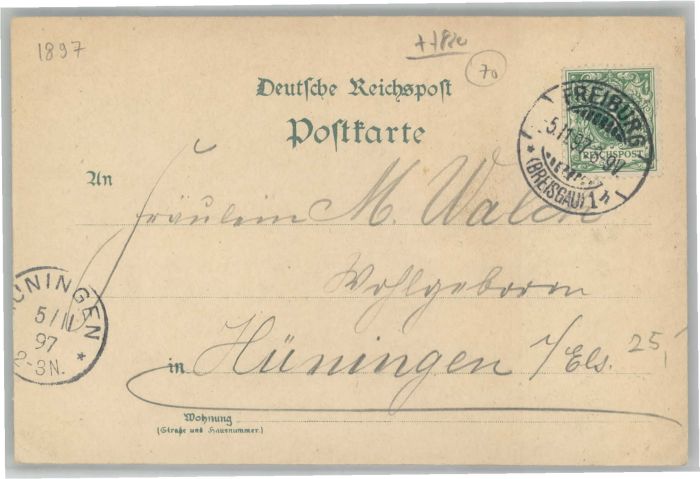 1897
70
Deutsche Reichspost
Postkarte
REICHSPOST
FREIBURG
5.11.97.8-9V.
* (BREISGAU) 1 h
An
Fräulein M. Walch
Wohlgeboren
in Hüningen i/Els.
25,
HÜNINGEN *
5/11
97
2-3N.
Wohnung
(Straße und Hausnummer.)